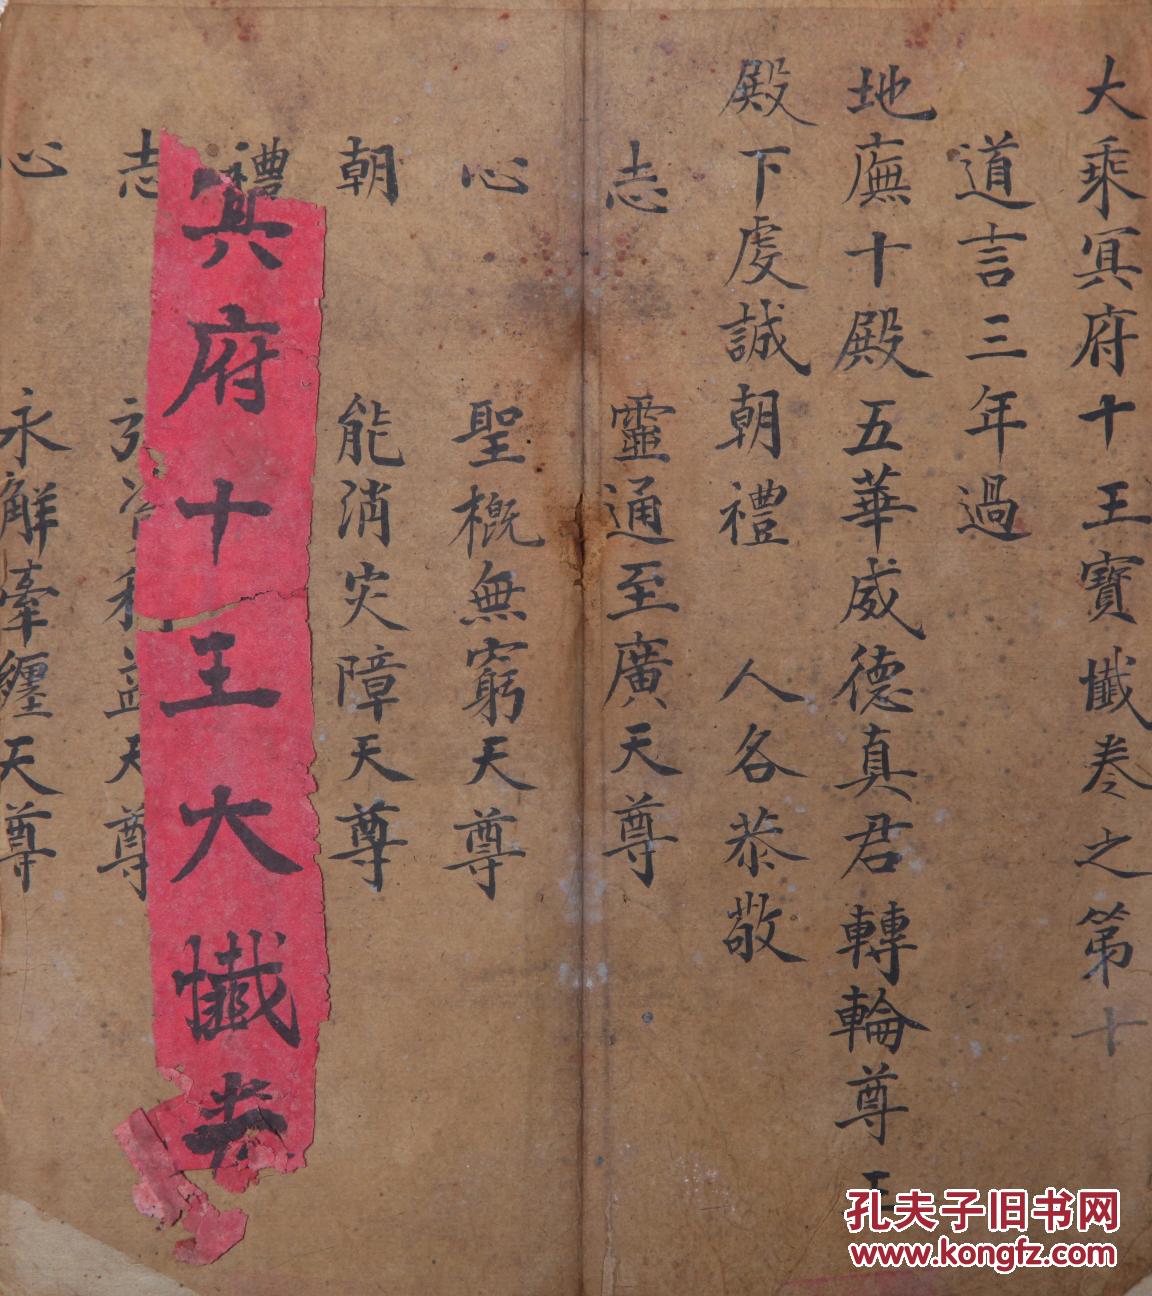 大乘冥府十王寳懴卷之第十
道言三年過
地廡十殿五華威德真君轉輪尊王
殿下虔誠朝禮 人各恭敬
志 靈通至廣天尊
心 聖概無窮天尊
朝 能消灾障天尊
禮
冥府十王大懴
志 益天尊
心 永解牽纏天尊
孔夫子旧书网
www.kongfz.com